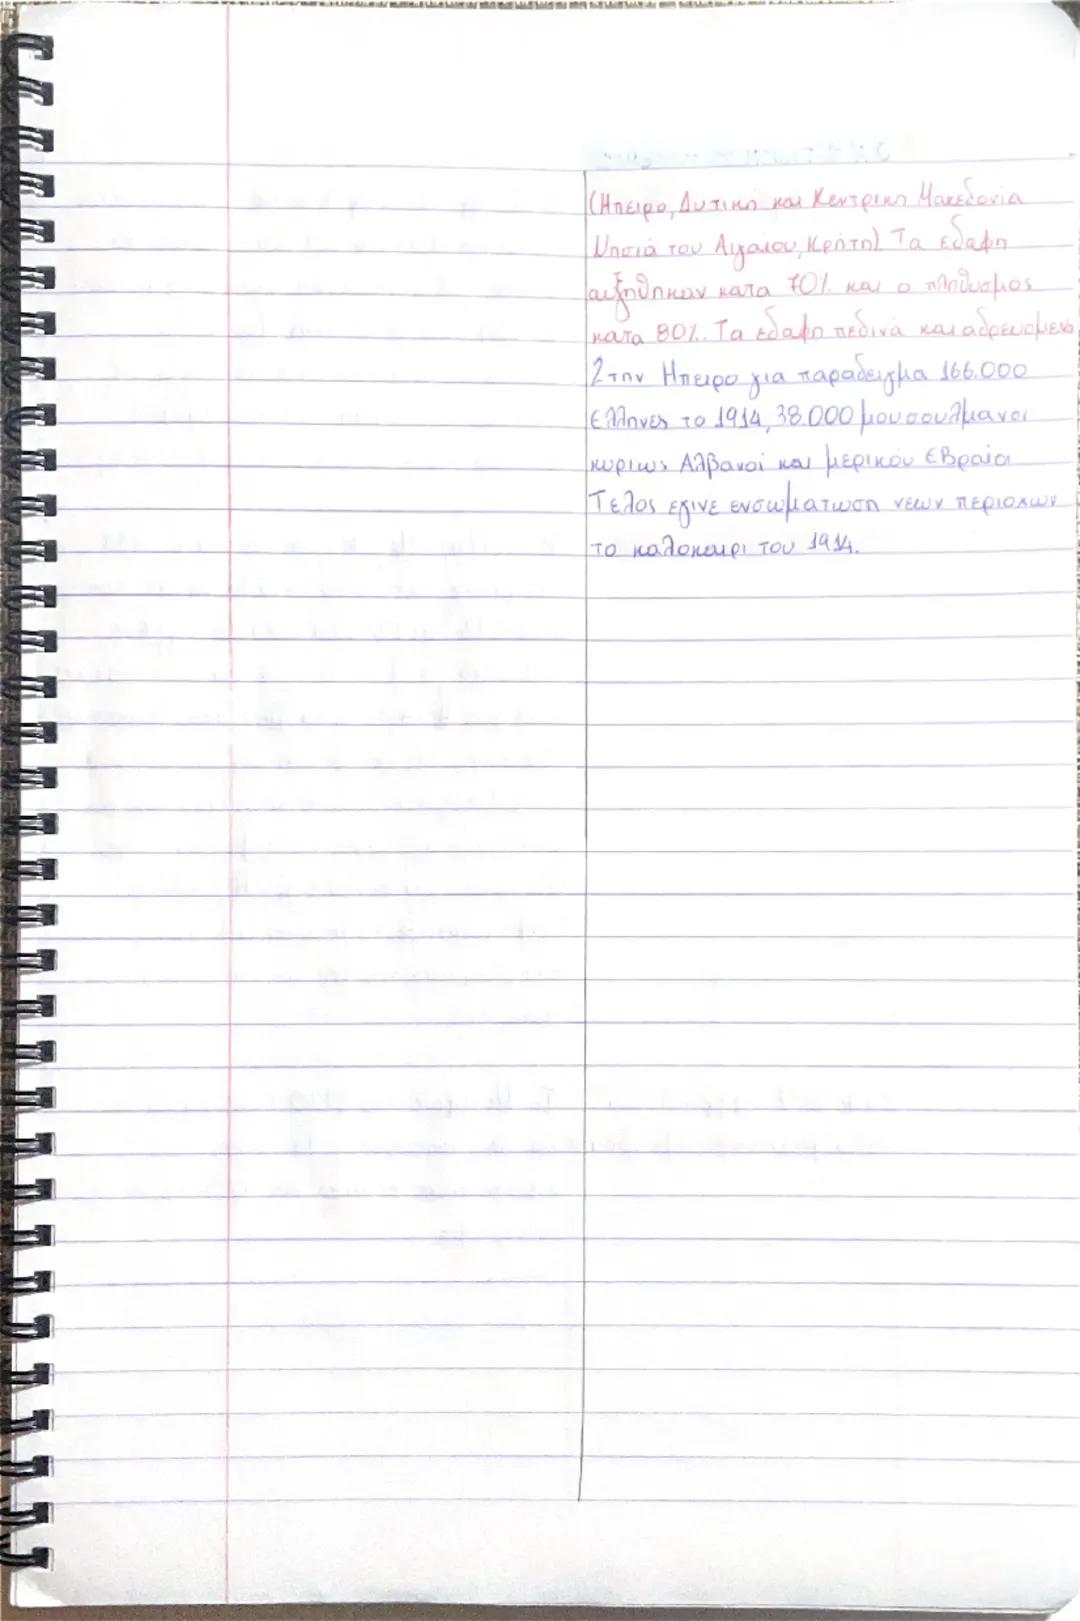 (Ηπειρο, Δυτικη και Κεντρικη Μακεδονια
Νησιά του Αιγαιου, Κρήτη) Τα εδαφη
αυξηθηκαν κατα 70% και ο πληθυσμός
κατα 80%. Τα εδαφη πεδινά και αδρευομενα
Στην Ηπειρο για παραδειγμα 166.000
Ελληνες το 1914, 38.000 μουσουλμανοι
κυριως Αλβανοί και μερικόυ Εβραίοι
Τελος εγινε ενσωματωση νεων περιοχων
το καλοκαιρι του 1914.